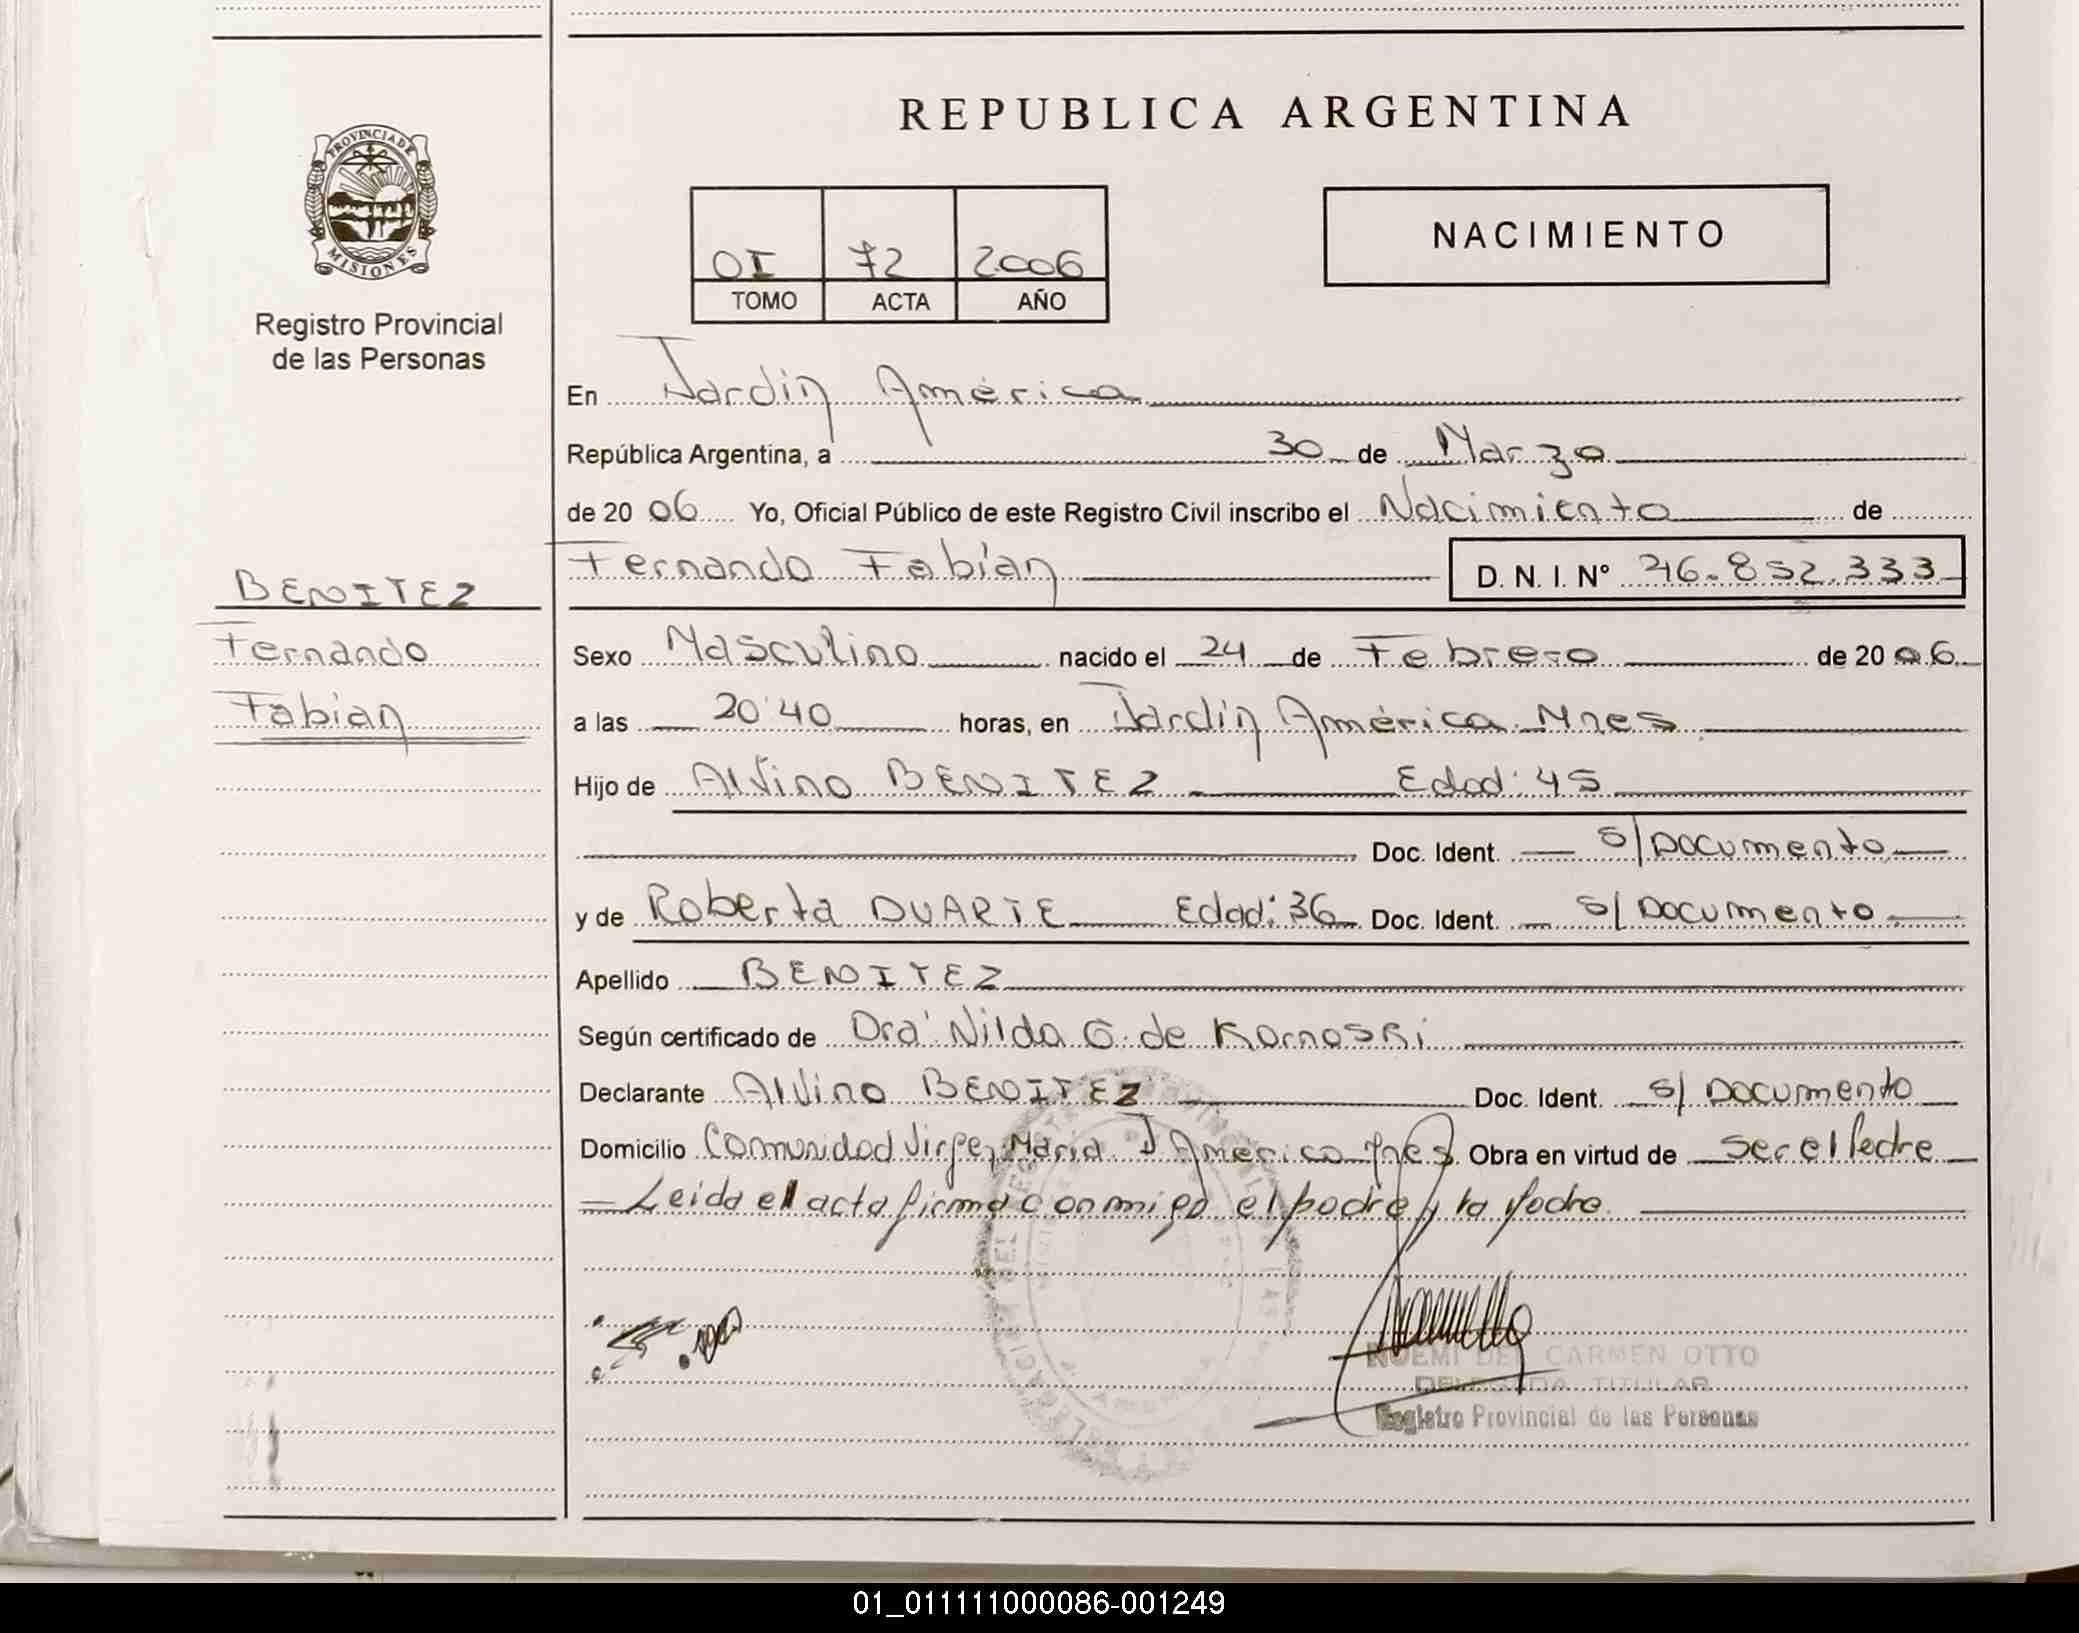 REPUBLICA ARGENTINA
PROVINCIA DE
MISIONES
Registro Provincial
de las Personas
OI 72 2006
TOMO ACTA AÑO
NACIMIENTO
En Jardín América
República Argentina, a 30 de Marzo
de 20 06 Yo, Oficial Público de este Registro Civil inscribo el Nacimiento de
Fernando Fabián D. N. I. N° 46.852.333
BENITEZ
Fernando
Fabián
Sexo Masculino nacido el 24 de Febrero de 20 06
a las 20'40 horas, en Jardín América Mnes
Hijo de Alvino BENITEZ Edad: 45
Doc. Ident. S/Documento
y de Roberta DUARTE Edad: 36 Doc. Ident. S/Documento
Apellido BENITEZ
Según certificado de Dra' Nilda G. de Kornoski
Declarante Alvino BENITEZ Doc. Ident. S/ Documento
Domicilio Comunidad Virgen Maria J América Mnes Obra en virtud de ser el Padre
Leida el acta firma conmigo el padre y la Madre
NOEMI DEL CARMEN OTTO
DELEGADA TITULAR
Registro Provincial de las Personas
01_011111000086-001249